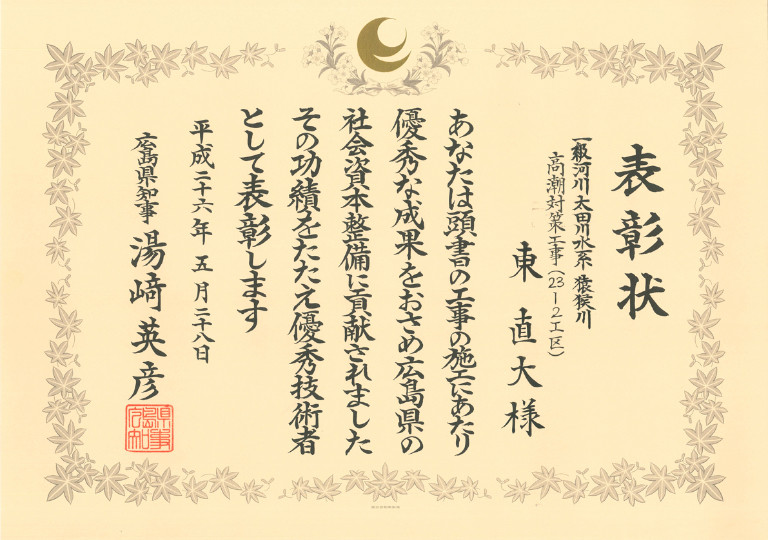 表彰状
一級河川太田川水系猿猴川
高潮対策工事(23-2工区)
東直大様
あなたは頭書の工事の施工にあたり
優秀な成果をおさめ広島県の
社会資本整備に貢献されました
その功績をたたえ優秀技術者
として表彰します
平成二十六年五月二十八日
広島県知事 湯﨑英彦